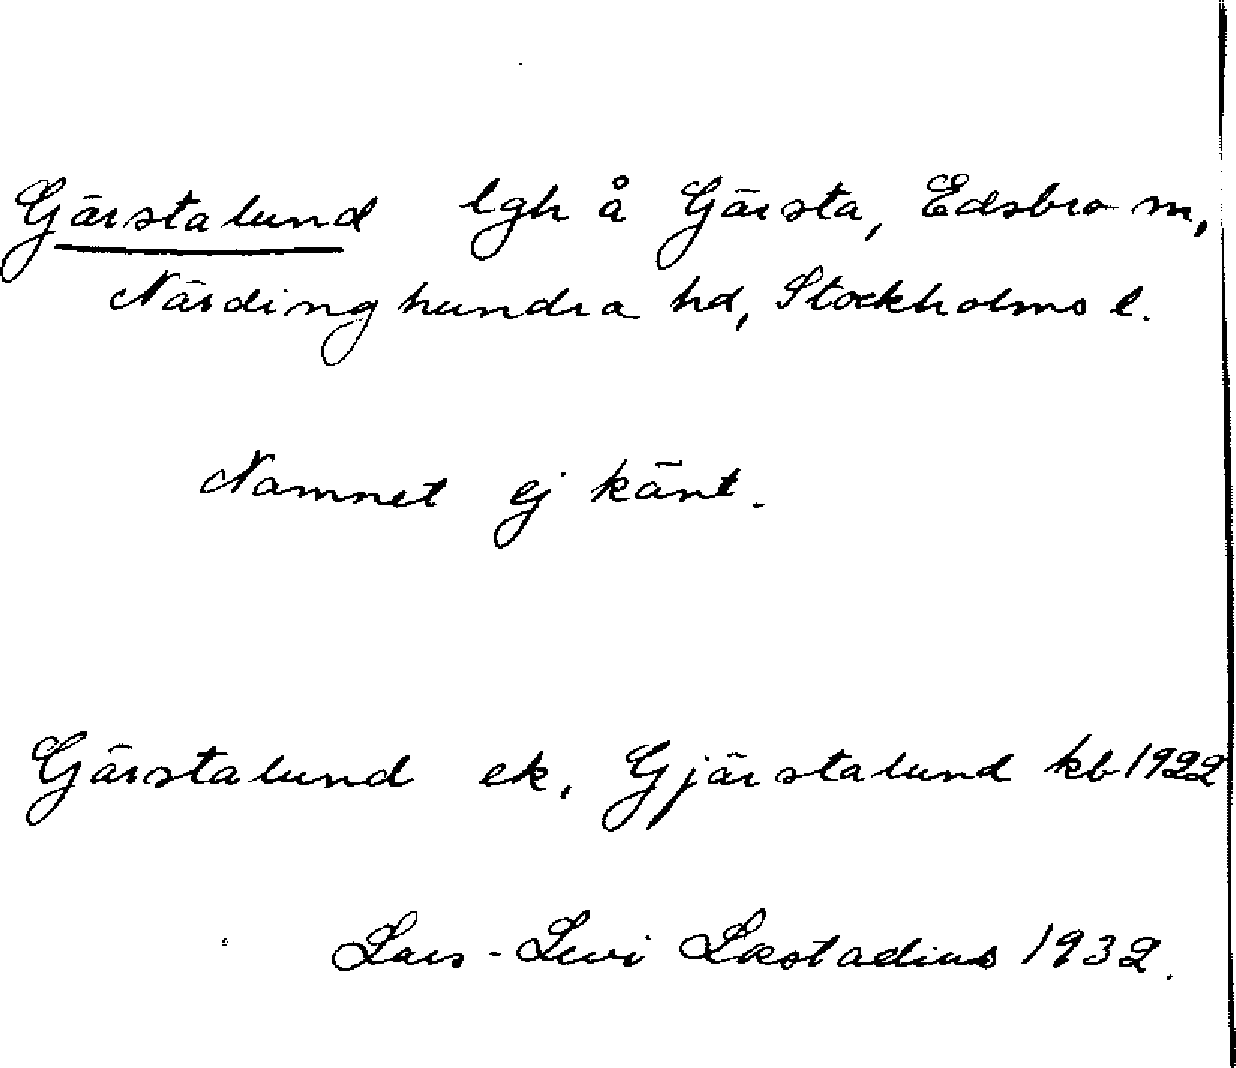 Gärstalund lgh å Gärsta, Edsbro sn,
Närdinghundra hd, Stockholms l.
Namnet ej känt.
Gärstalund ek. Gjärstalund kb 1922
Lars-Levi Læstadius 1932.